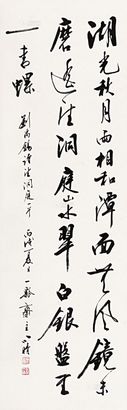 湖光秋月两相和潭面无风镜未
磨遥望洞庭山水翠白银盘里
一青螺
劉禹錫詩望洞庭一首 丙戌夏